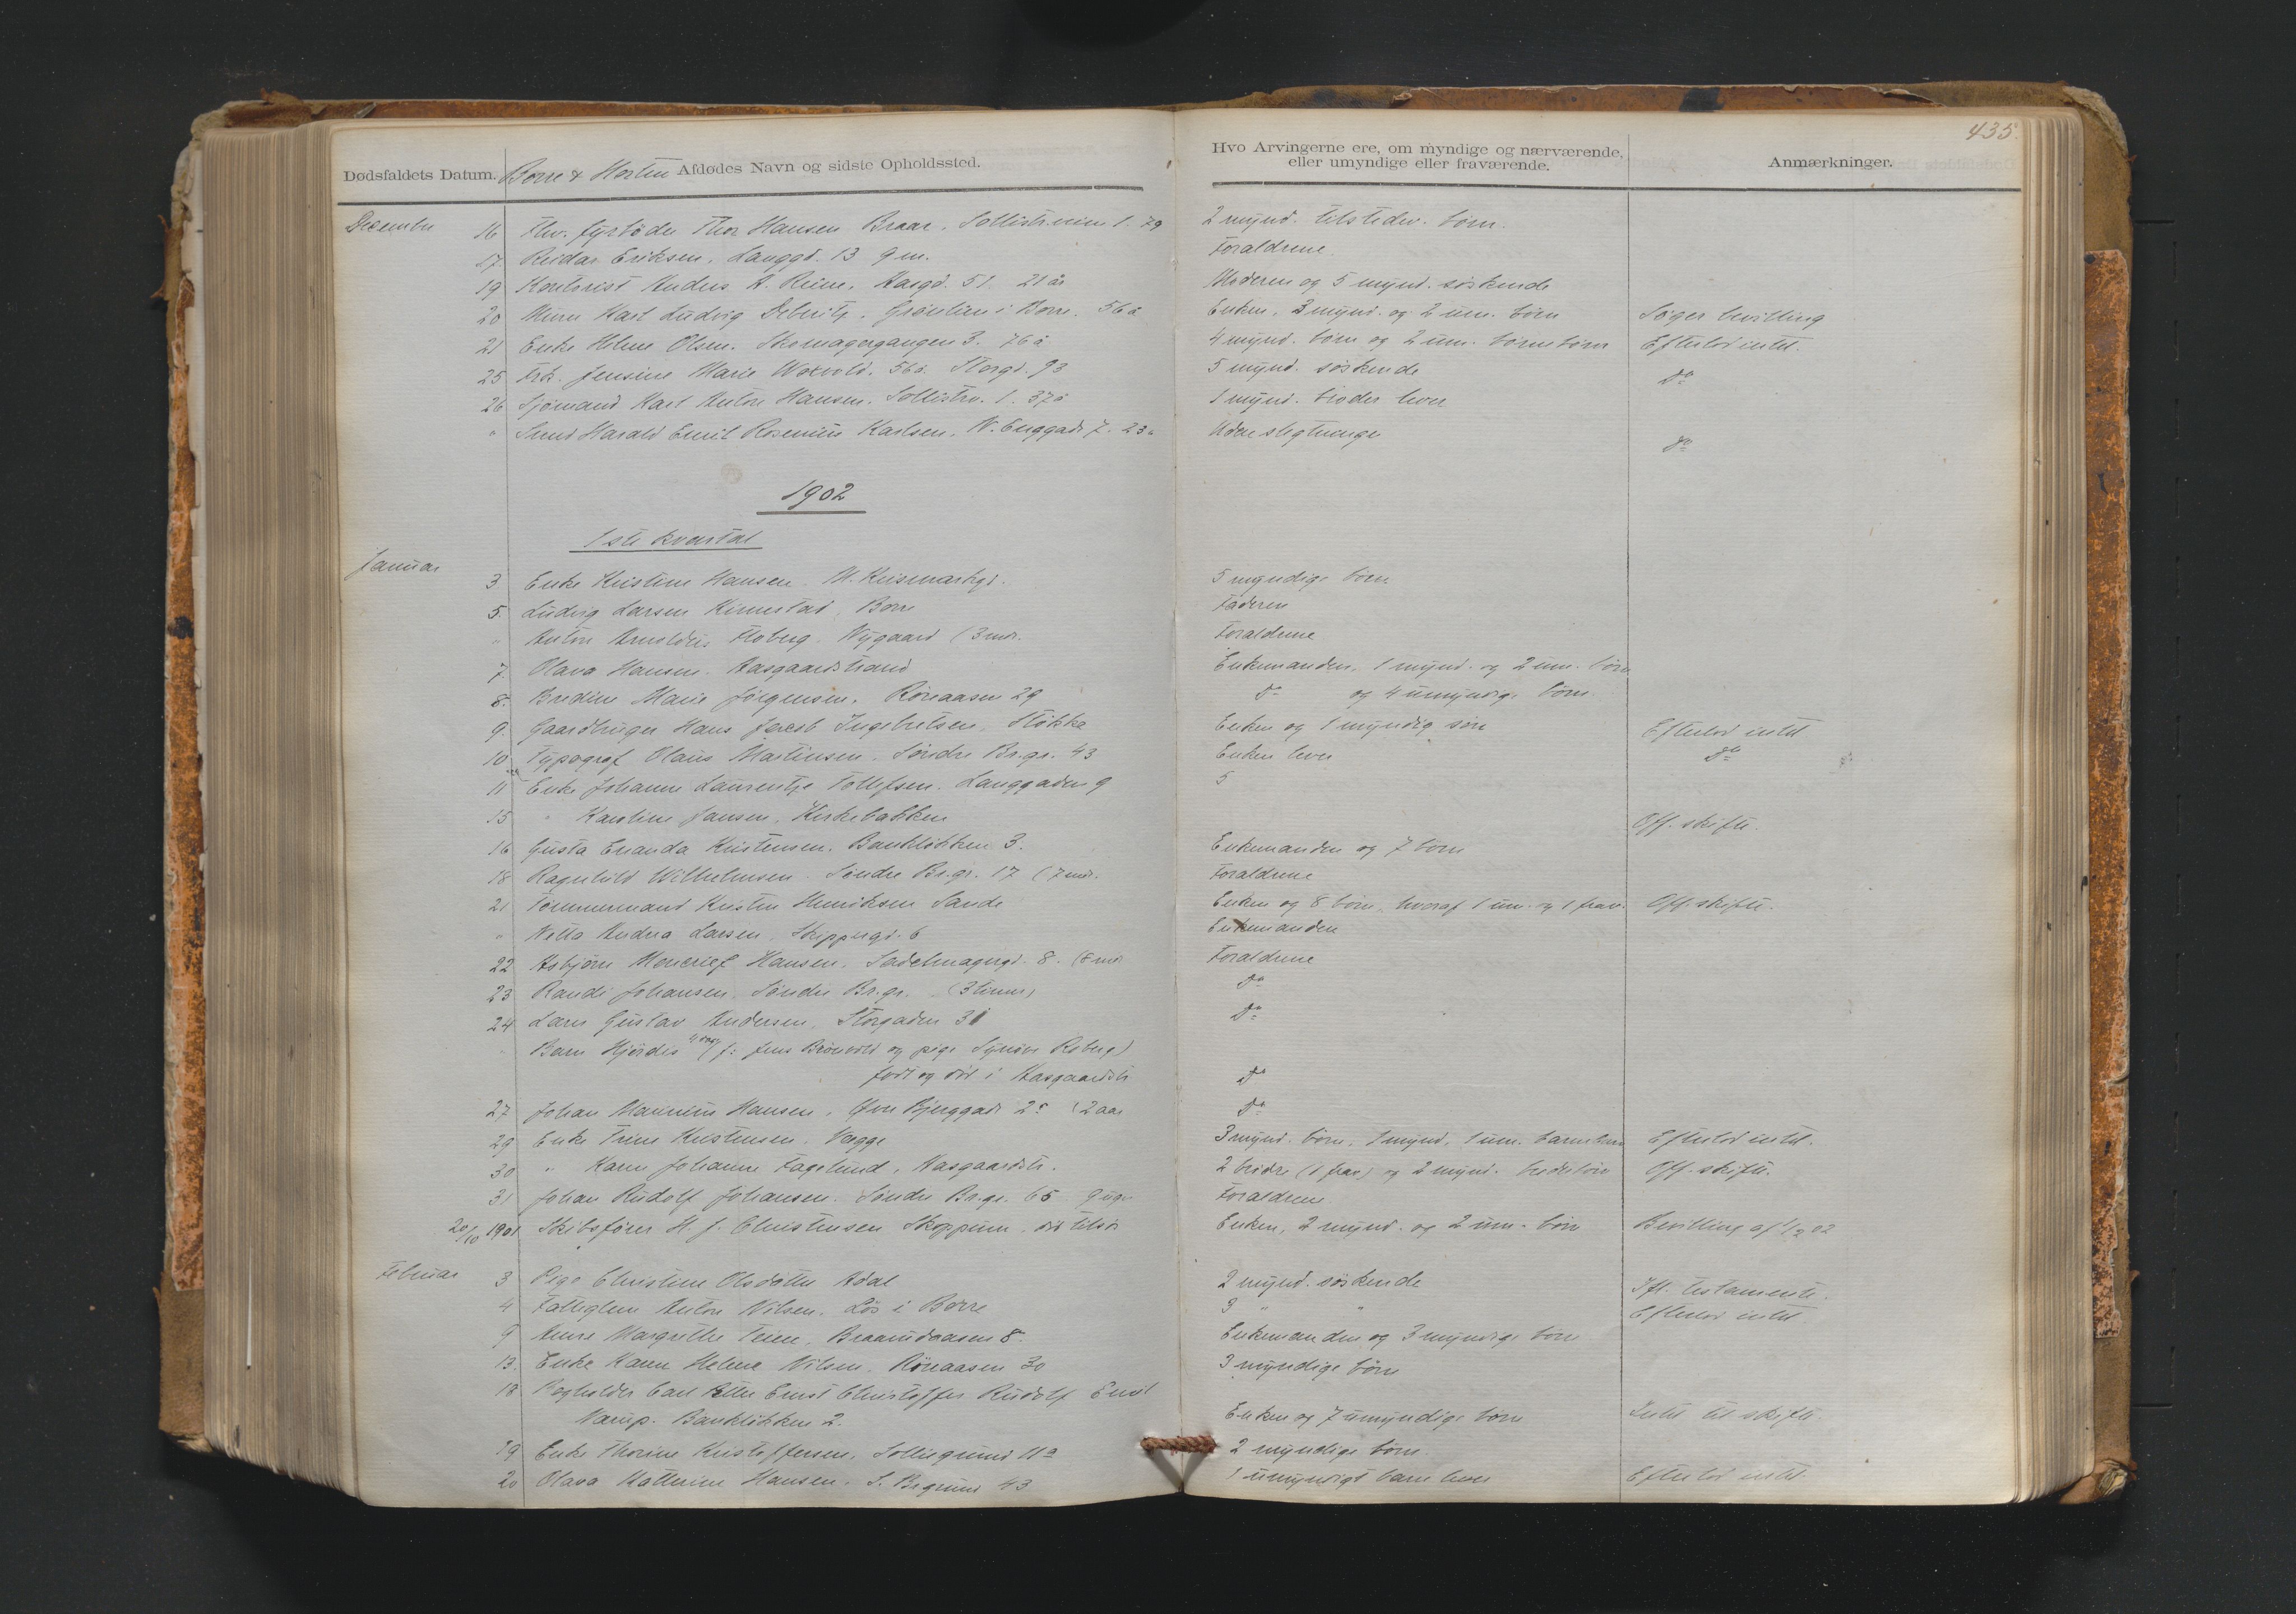 435.
Dødsfaldets Datum. Borre & Horten Afdødes Navn og sidste Opholdssted. Hvo Arvingerne ere, om myndige og nærværende, eller umyndige eller fraværende. Anmærkninger.
December 16 Fhv. fyrbøder Thor Hansen Braar, 79 2 mynd. tilstedev. børn.
17. Reidar Eriksen. Langgd. 13 9 m. Forældrene
19 Kontorist Anders A. Aasgd. 51. 21 år Moderen og 5 mynd. søskende
20 Murer Karl Ludvig i Borre. 56 å Enken, 3 mynd. og 2 um. børn Søger bevilling
21 Enke Helene Olsen. Skomagergangen 3. 76 å 4 mynd. børn og 2 um. børnebørn Efterlod intet.
25 Arb. Jensine Marie 56 å. Storgd. 93 5 mynd. søskende do
26 Sjømand Karl Anton Hansen. Sollistrv. 1. 37 å 1 mynd. broder lever
" Smed Harald Emil Karlsen, N. Enggade 7. 23 å Uden slegtninge do
1902
1ste kvartal
Januar 3 Enke Kristine Hansen. 5 myndige børn
5. Ludvig Larsen Kirnestad, Borre Faderen
" Anton Floberg. Nygaard (3 mdr. Forældrene
7. Olava Hansen. Aasgaardstrand Enkemanden, 1 mynd. og 2 um. børn
8. Bredine Marie Jørgensen. Røreaasen 29 do og 4 umyndige børn.
9. Gaardbruger Hans Jacob Ingebretsen. Stokke Enken og 1 myndig søn Efterlod intet
10 Typograf Olaus Martinsen. Søndre Br.gr. 43 Enken lever do
11 Enke Johanne Laurentze Tollefsen. Langgaden 9 5
15 " Karoline Jansen, Kirkebakken Off. skifte.
16 Gusta Enanda Kristensen. Bankløkken 3. Enkemanden og 7 børn
18 Ragnhild Wilhelmsen. Søndre Br.gr. 17 (7 mdr. Forældrene
21 Tømmermand Kristen Henriksen Sande Enken og 8 børn, hvoraf 1 um. og 1 frav. Off. skifte.
" Nella Andrea Larsen, Skippergd. 6 Enkemanden
22 Asbjørn Hansen. Sadelmagergd. 8. Forældrene
23 Randi Johansen. Søndre Br.gr. (3 timer) do
24 Lars Gustav Andersen, Storgaden 31 do
" Barn Hjørdis f: Jens og pige
født og død i Aasgaardstr. do
27 Johan Hansen, Øvre Bjerggade 25 (2 aar do
29 Enke Trine Kristensen. 3 mynd. børn, 1 mynd, 1 um. barnebarn Efterlod intet.
30 " Karen Johanne Fagelund, Aasgaardstr. 2 brødre (1 frav) og 2 mynd. Off. skifte.
31 Johan Rudolf Johansen. Søndre Br.gr. 65 9 uger Forældrene
20/10 1901 Skibsfører H. J. Christensen Skoppum. død tilsjøs Enken, 2 mynd. og 2 um. børn Bevilling af 1/2 02
Februar 3 Pige Christine Olsdatter Adal 2 mynd. søskende Ifl. testamente.
4 Fattiglem Anton Nilsen. Løs i Borre 3 " " Efterlod intet.
9 Anne Margrethe Teien. Braarudaasen 8. Enkemanden og 3 myndige børn
13. Enke Karen Helene Nilsen. Røreaasen 30 3 myndige børn
18 Bogholder Carl Peter Ernst Christoffer Rudolf Emil
Narup. Bankløkken 2. Enken og 7 umyndige børn Intet til skifte.
19 Enke Thorine Kristoffersen. Solliegrund 11 a 2 myndige børn.
20 Olava Kathrine Hansen. S. Br.grund 43 1 umyndigt barn lever Efterlod intet.